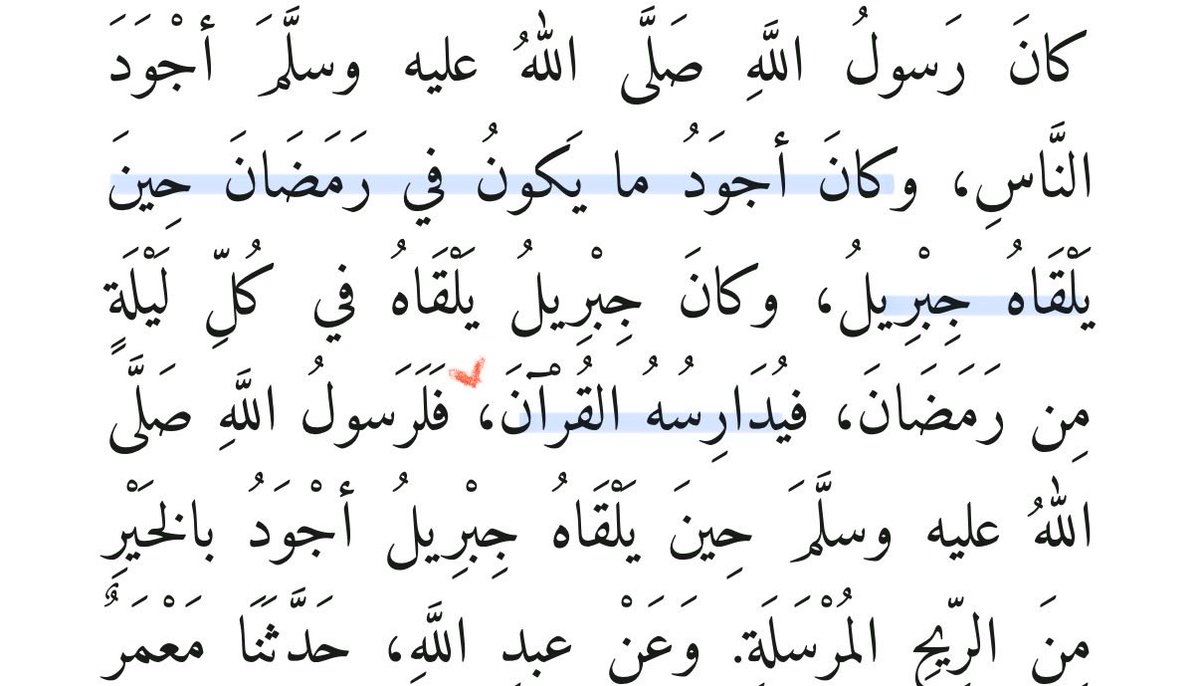 كانَ رَسولُ اللَّهِ صَلَّى اللهُ عليه وسلَّمَ أجْوَدَ
النَّاسِ، وكانَ أجوَدُ ما يَكونُ في رَمَضَانَ حِينَ
يَلْقَاهُ جِبْرِيلُ، وكانَ جِبْرِيلُ يَلْقَاهُ في كُلِّ لَيْلَةٍ
مِن رَمَضَانَ، فيُدَارِسُهُ القُرْآنَ، فَلَرَسولُ اللَّهِ صَلَّى
اللهُ عليه وسلَّمَ حِينَ يَلْقَاهُ جِبْرِيلُ أجْوَدُ بالخَيْرِ
مِنَ الرِّيحِ المُرْسَلَةِ. وَعَنْ عبدِ اللَّهِ، حَدَّثَنَا مَعْمَرٌ